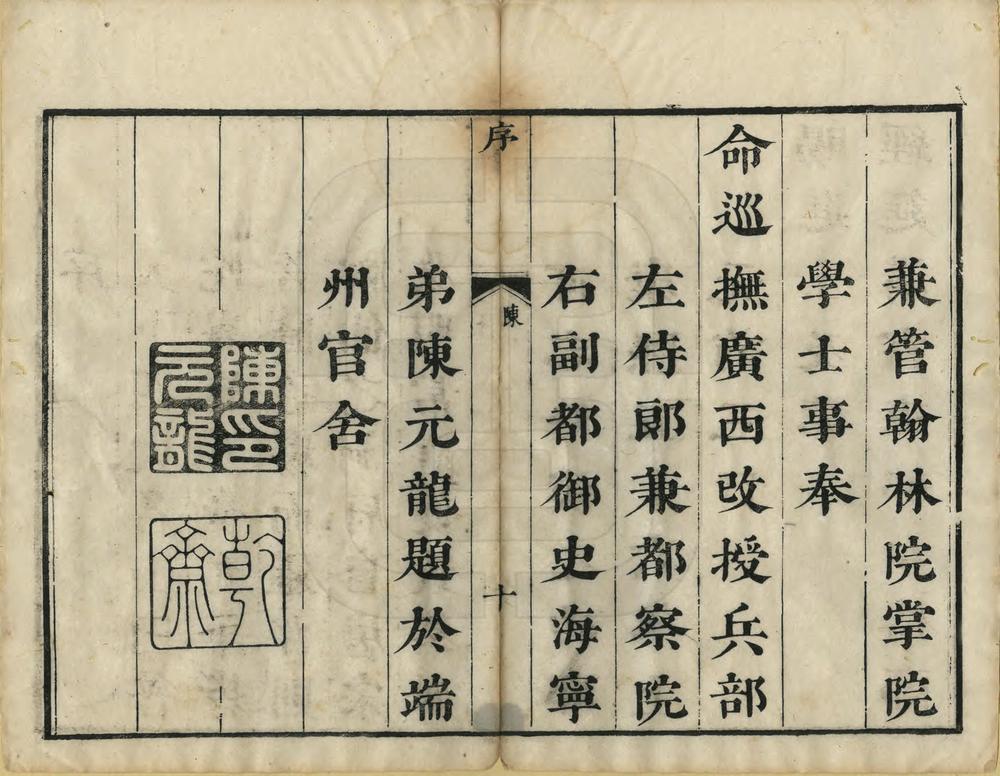 兼管翰林院掌院
學士事奉
命巡撫廣西改授兵部
左侍郎兼都察院
右副都御史海寧
序
陳
十
弟陳元龍題於端
州官舍
陳元龍印
乾齋